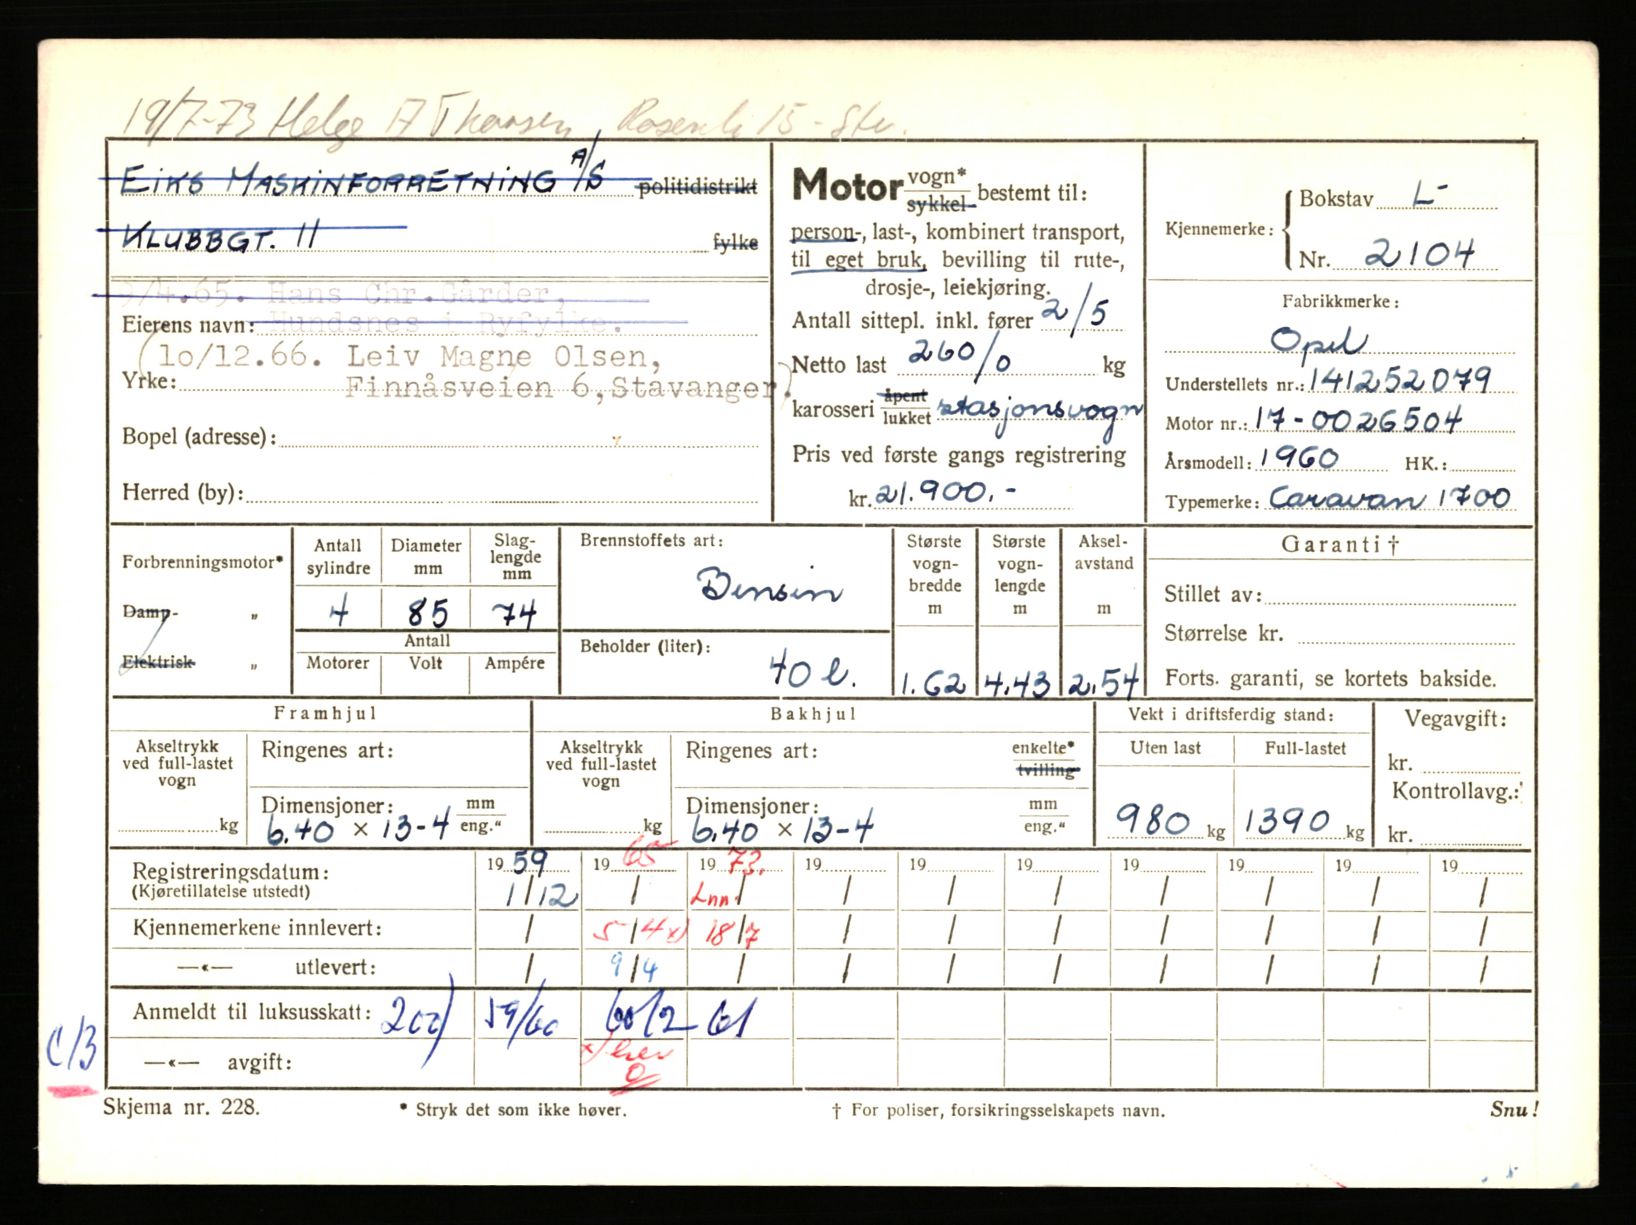 19/7-73 Helge A Thorsen, 15 - Stv.
EIKS MASKINFORRETNING A/S politidistrikt
KLUBBGT. 11 fylke
9/4.65. Hans Chr.Gårder,
Eierens navn: Hundsnes i Ryfylke.
(10/12.66. Leiv Magne Olsen,
Yrke: Finnåsveien 6, Stavanger).
Bopel (adresse):
Herred (by):
Motor vogn* sykkel- bestemt til:
person-, last-, kombinert transport,
til eget bruk, bevilling til rute-,
drosje-, leiekjøring.
Antall sittepl. inkl. fører 2/5
Netto last 260/0 kg
karosseri åpent lukket stasjonsvogn
Pris ved første gangs registrering
kr. 21.900.-
Kjennemerke: Bokstav L-
Nr. 2104
Fabrikkmerke:
Opel
Understellets nr.: 141252079
Motor nr.: 17-0026504
Årsmodell: 1960 HK.:
Typemerke: Caravan 1700
Forbrenningsmotor*
Damp- „
Elektrisk „
Antall sylindre Diameter mm Slag-lengde mm
4 85 74
Antall
Motorer Volt Ampére
Brennstoffets art:
Bensin
Beholder (liter):
40 l.
Største vogn-bredde m Største vogn-lengde m Aksel-avstand m
1.62 4.43 2.54
Garanti †
Stillet av:
Størrelse kr.
Forts. garanti, se kortets bakside.
Framhjul
Akseltrykk ved full-lastet vogn
kg
Ringenes art:
Dimensjoner: mm
6.40 × 13-4 eng."
Bakhjul
Akseltrykk ved full-lastet vogn
kg
Ringenes art: enkelte* tvilling
Dimensjoner: mm
6.40 × 13-4 eng."
Vekt i driftsferdig stand:
Uten last Full-lastet
980 kg 1390 kg
Vegavgift:
kr.
Kontrollavg.:
kr.
Registreringsdatum: 19 59 19 65 19 73. 19 19 19 19 19 19 19
(Kjøretillatelse utstedt) 1/12 / Inn. / / / / / / / /
Kjennemerkene innlevert: / 5/4 x) 18/7 / / / / / / /
—«— utlevert: / 9/4 / / / / / / / /
Anmeldt til luksusskatt: 202) 59/60 60/2 61
C/3
—«— avgift: x)
Skjema nr. 228.
* Stryk det som ikke høver.
† For poliser, forsikringsselskapets navn.
Snu!